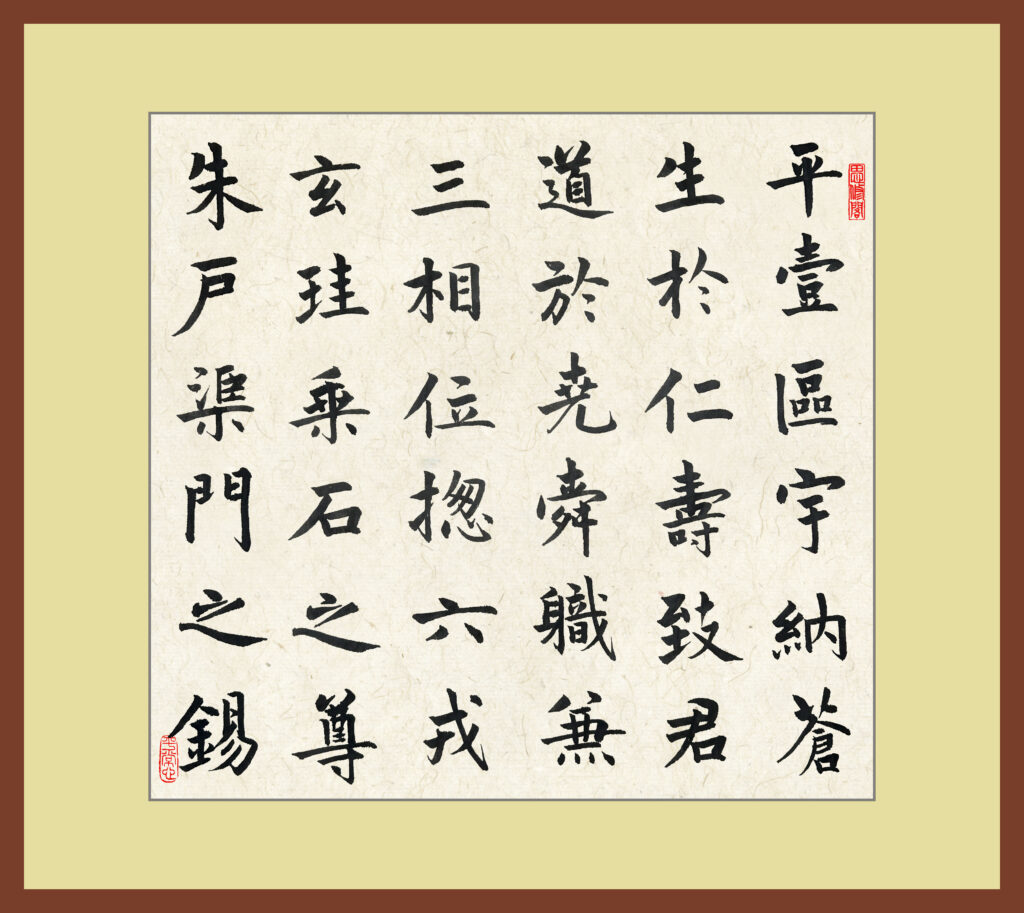 平壹區宇納蒼
生扵仁壽致君
道於尭舜軄兼
三相位揔六戎
玄珪乗石之尊
朱戶渠門之錫
平常心